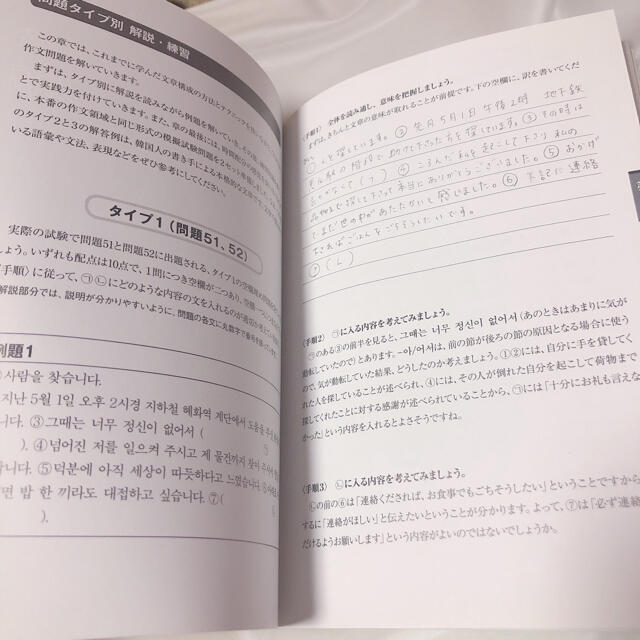 問題タイプ別 解説・練習
この章では、これまでに学んだ文章構成の方法とテクニックを
作文問題を解いていきます。
まずは、タイプ別に解説を読みながら例題を解いていき、その後、
とで実践力を付けていきます。また、章の最後には、時間配分の
に、本番の作文領域と同じ形式の模擬試験問題を2セット準備しました。
のタイプ2と3の解答例は、韓国人の書き手による本格的な
いる語彙や文法、表現などをぜひ参考にしてください。
タイプ1(問題51、52)
実際の試験で問題51と問題52に出題される、タイプ1の空欄
しょう。いずれも配点は10点で、1問につき空欄が二つあり、空欄一つ
〈手順〉に従って、㉠㉡にどのような内容の文を入れるのが適切か
解説部分では、説明が分かりやすいように、問題の各文に丸数字で番号を
例題1
사람을 찾습니다.
지난 5월 1일 오후 2시경 지하철 혜화역 계단에서 도움을 주신
니다. ③그때는 너무 정신이 없어서 (
㉠
). ④넘어진 저를 일으켜 주시고 제 물건까지 찾아 주셔서
합니다. ⑤덕분에 아직 세상이 따뜻하다고 느꼈습니다. ⑥
면 밥 한 끼라도 대접하고 싶습니다. ⑦(
㉡
).
〈手順1〉 全体を読み通し、意味を把握しましょう。
まずは、きちんと文章の意味が取れることが前提です。下の空欄に、訳を書いてくだ
さい。
人を探しています。② 先月5月1日 午後2時 地下鉄
の階段で助けて下さった方を探しています。③ その時は
(㉠) ④ ころんだ私を起こして下さり 私の
品物まで探して下さって本当にありがとうございました。⑤ おかげ
でまだ世の中があたたかいと感じました。⑥ 下記に連絡
くださればごはんをごちそうしたいです。
⑦ (㉡)
〈手順2〉 ㉠に入る内容を考えてみましょう。
㉠のある③の前半を見ると、그때는 너무 정신이 없어서(あのときはあまりに気が
動転していたので)とあります。-아/어서は、前の節が後ろの節の原因となる場合に使う
ので、気が動転していた結果、どうしたのか考えましょう。①②には、自分に手を貸してく
れた人を探していることが述べられ、④には、その人が倒れた自分を起こして荷物まで
探してくれたことに対する感謝が述べられていることから、㉠には「十分にお礼も言えな
かった」という内容を入れるとよさそうですね。
〈手順3〉 ㉡に入る内容を考えてみましょう。
㉡の前の⑥は「連絡くだされば、お食事でもごちそうしたい」ということですから
するに「連絡がほしい」と伝えたいということが分かります。よって、⑦は「必ず連絡
だけるようお願いします」という内容がよいのではないでしょうか。